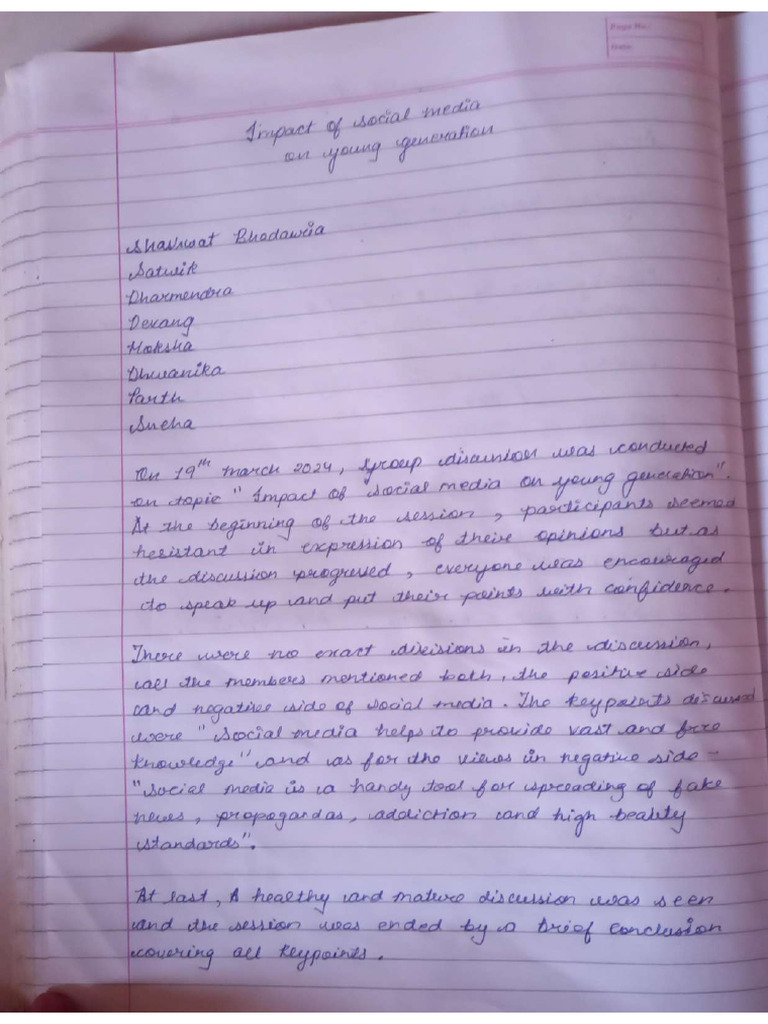 Page No.
Date
Impact of social media
on young generation
Shashwat Bhadawria
Satwik
Dharmendra
Devang
Moksha
Dhwanika
Parth
Sneha
On 19th march 2024, group discussion was conducted
on topic "Impact of social media on young generation".
At the beginning of the session, participants seemed
hesistant in expression of their opinions but as
the discussion progressed, everyone was encouraged
to speak up and put their points with confidence.
There were no exact divisions in the discussion,
all the members mentioned both, the positive side
and negative side of social media. The keypoints discussed
were "Social media helps to provide vast and free
knowledge" and as for the views in negative side -
"Social media is a handy tool for spreading of fake
news, propogandas, addiction and high beauty
standards".
At last, A healthy and mature discussion was seen
and the session was ended by a brief conclusion
covering all keypoints.